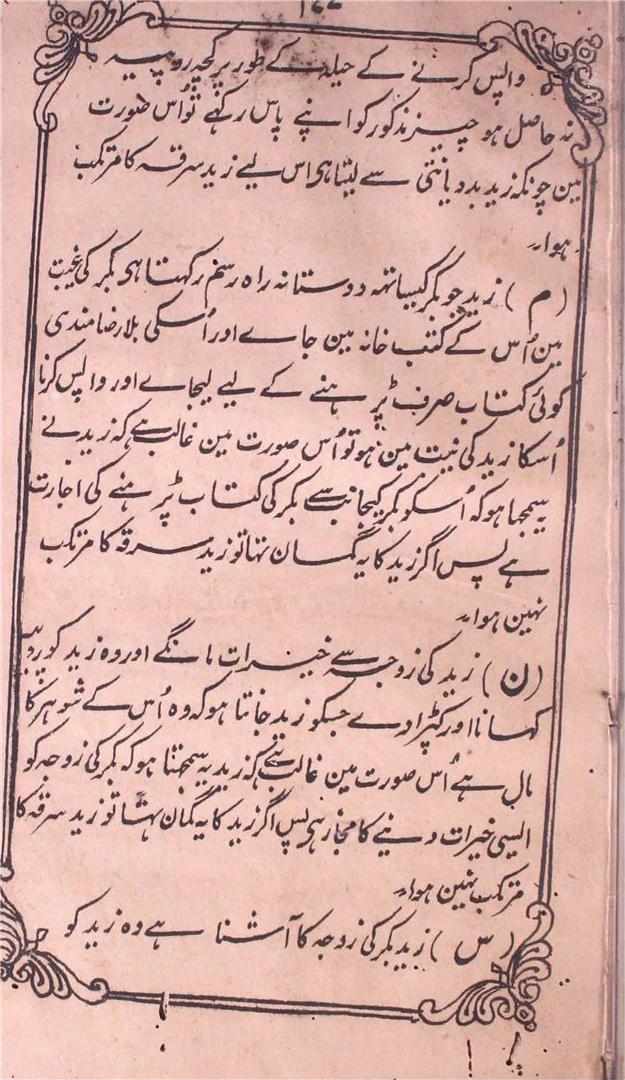 واپس کرنے کے حیلہ کے طور پر کچھ روپیہ
نہ حاصل ہو چیز مذکور کو اپنے پاس رکہے تو اس صورت
مین چونکہ زید بددیانتی سے لیتا ہی اس لیے زید سرقہ کا مرتکب
ہوا۔
(م) زید جو بکر کیساتہہ دوستانہ راہ رسم رکہتا ہی بکر کی غیبت
مین اُس کے کتب خانہ مین جاے اور اُسکی بلا رضامندی
کوئی کتاب صرف پڑہنے کے لیے لیجاے اور واپس کرنا
اُسکا زید کی نیت مین ہو تو اُس صورت مین غالب ہے کہ زید نے
یہ سمجہا ہو کہ اُسکو بکر کیجانب سے بکر کی کتاب پڑہنے کی اجازت
ہے پس اگر زید کا یہ گمان تہا تو زید سرقہ کا مرتکب
نہین ہوا۔
(ن) زید بکر کی زوجہ سے خیرات مانگے اور وہ زید کو روپیہ
کہانا اور کپڑا دے جسکو زید جانتا ہو کہ وہ اُس کے شوہر کا
مال ہے اُس صورت مین غالب ہے کہ زید یہ سمجہتا ہو کہ بکر کی زوجہ کو
ایسی خیرات دینے کا مجاز ہی پس اگر زید کا یہ گمان تہا تو زید سرقہ کا
مرتکب نہین ہوا۔
(س) زید بکر کی زوجہ کا آشنا ہے وہ زید کو